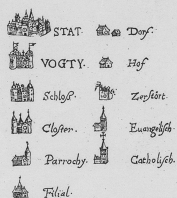 STAT. Dorf.
VOGTY Hof
Schloß. Zerstört.
Closter. Euangelisch.
Parrochy. Catholisch.
Filial.